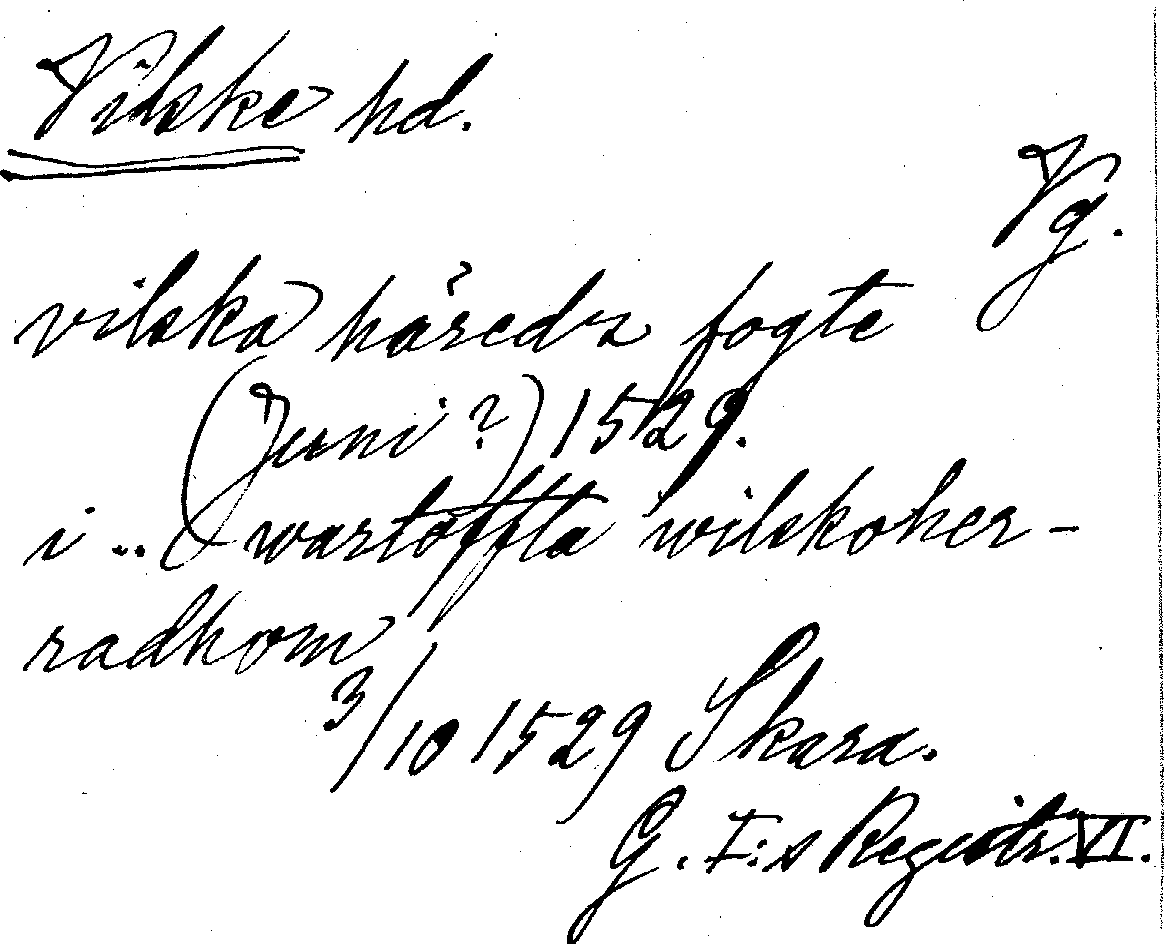 Vilske hd.
Vg.
vilska häredz fogte
(Juni?) 1529.
i .. wartöffta wilskoher-
radhom
3/10 1529 Skara.
G. I:s Registr. VI.